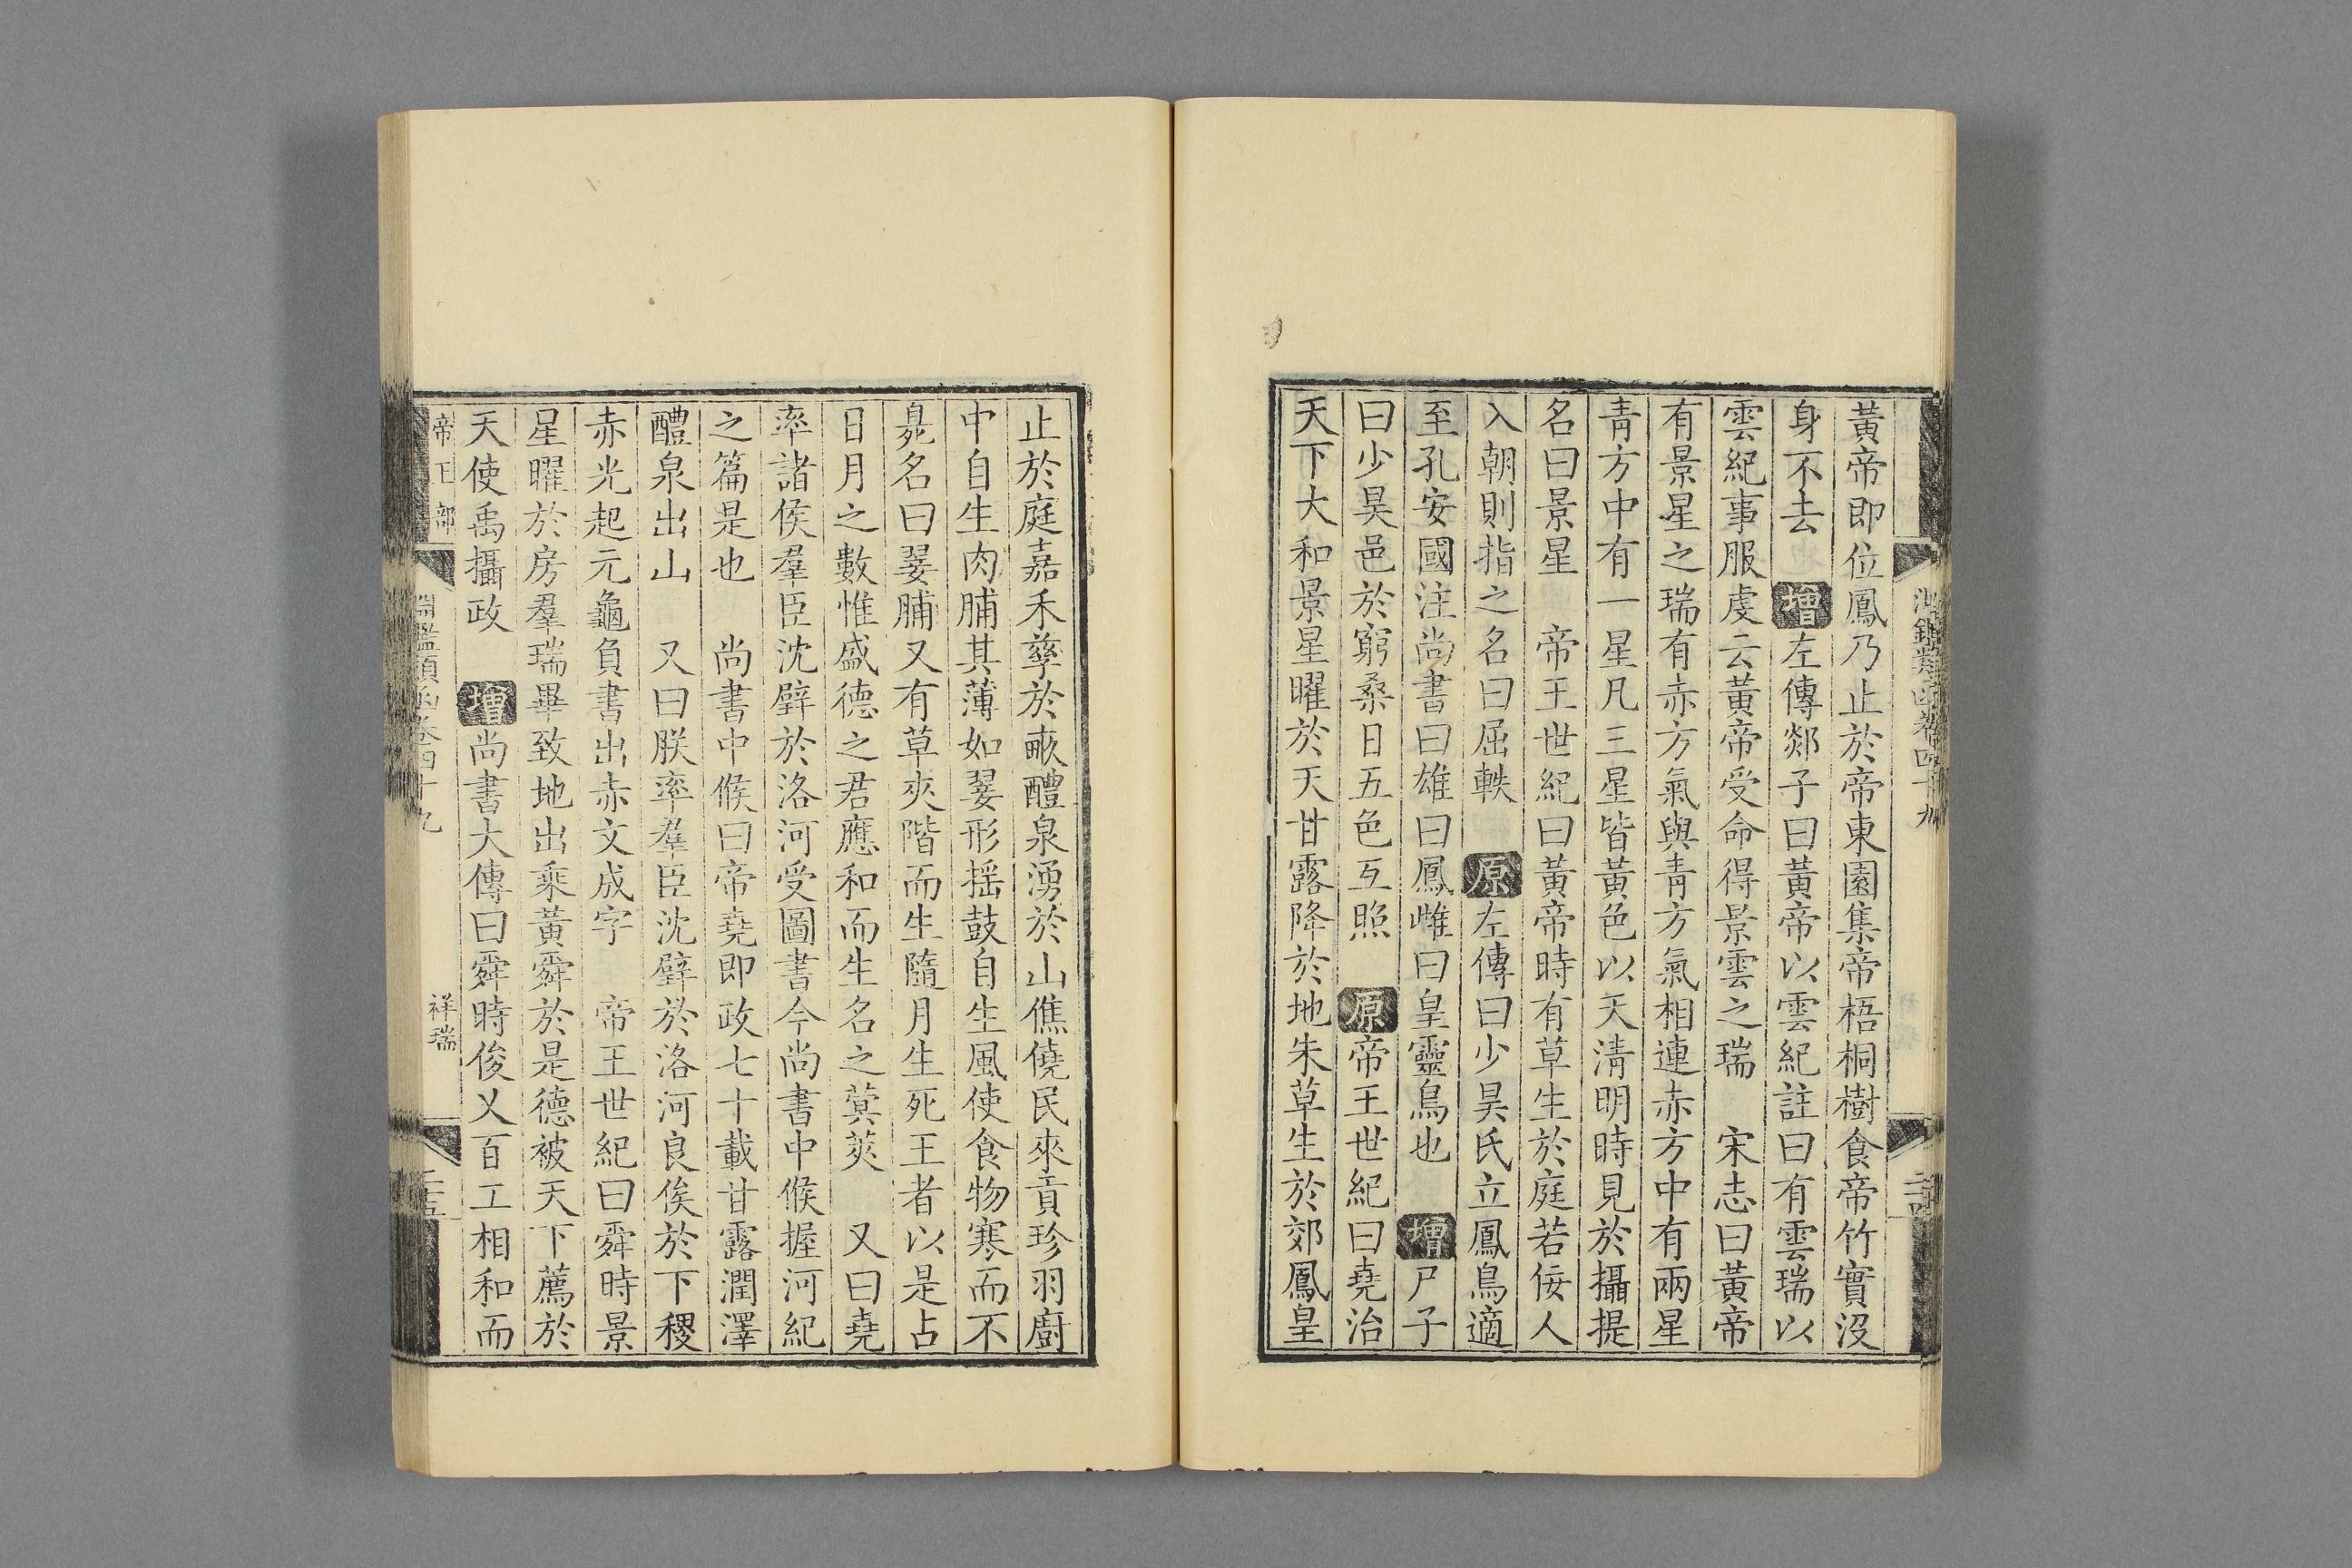 黃帝即位鳳乃止於帝東園集帝梧桐樹食帝竹實沒
身不去 增左傳郯子曰黃帝以雲紀註曰有雲瑞以
雲紀事服虔云黃帝受命得景雲之瑞 宋志曰黃帝
有景星之瑞有赤方氣與青方氣相連赤方中有兩星
青方中有一星凡三星皆黃色以天清明時見於攝提
名曰景星 帝王世紀曰黃帝時有草生於庭若佞人
入朝則指之名曰屈軼 原左傳曰少昊氏立鳳鳥適
至孔安國注尚書曰雄曰鳳雌曰皇靈鳥也 增尸子
曰少昊邑於窮桑日五色互照 原帝王世紀曰堯治
天下大和景星曜於天甘露降於地朱草生於郊鳳皇
止於庭嘉禾孳於畝醴泉湧於山僬僥民來貢珍羽廚
中自生肉脯其薄如翣形搖鼓自生風使食物寒而不
臰名曰翣脯又有草夾階而生隨月生死王者以是占
日月之數惟盛德之君應和而生名之蓂莢 又曰堯
率諸侯羣臣沈璧於洛河受圖書今尚書中候握河紀
之篇是也 尚書中候曰帝堯即政七十載甘露潤澤
醴泉出山 又曰朕率羣臣沈璧於洛河良俟於下稷
赤光起元龜負書出赤文成字 帝王世紀曰舜時景
星曜於房羣瑞畢致地出乘黃舜於是德被天下薦於
天使禹攝政 增尚書大傳曰舜時俊乂百工相和而
帝王部 淵鑑類函卷四十九 祥瑞 二十五